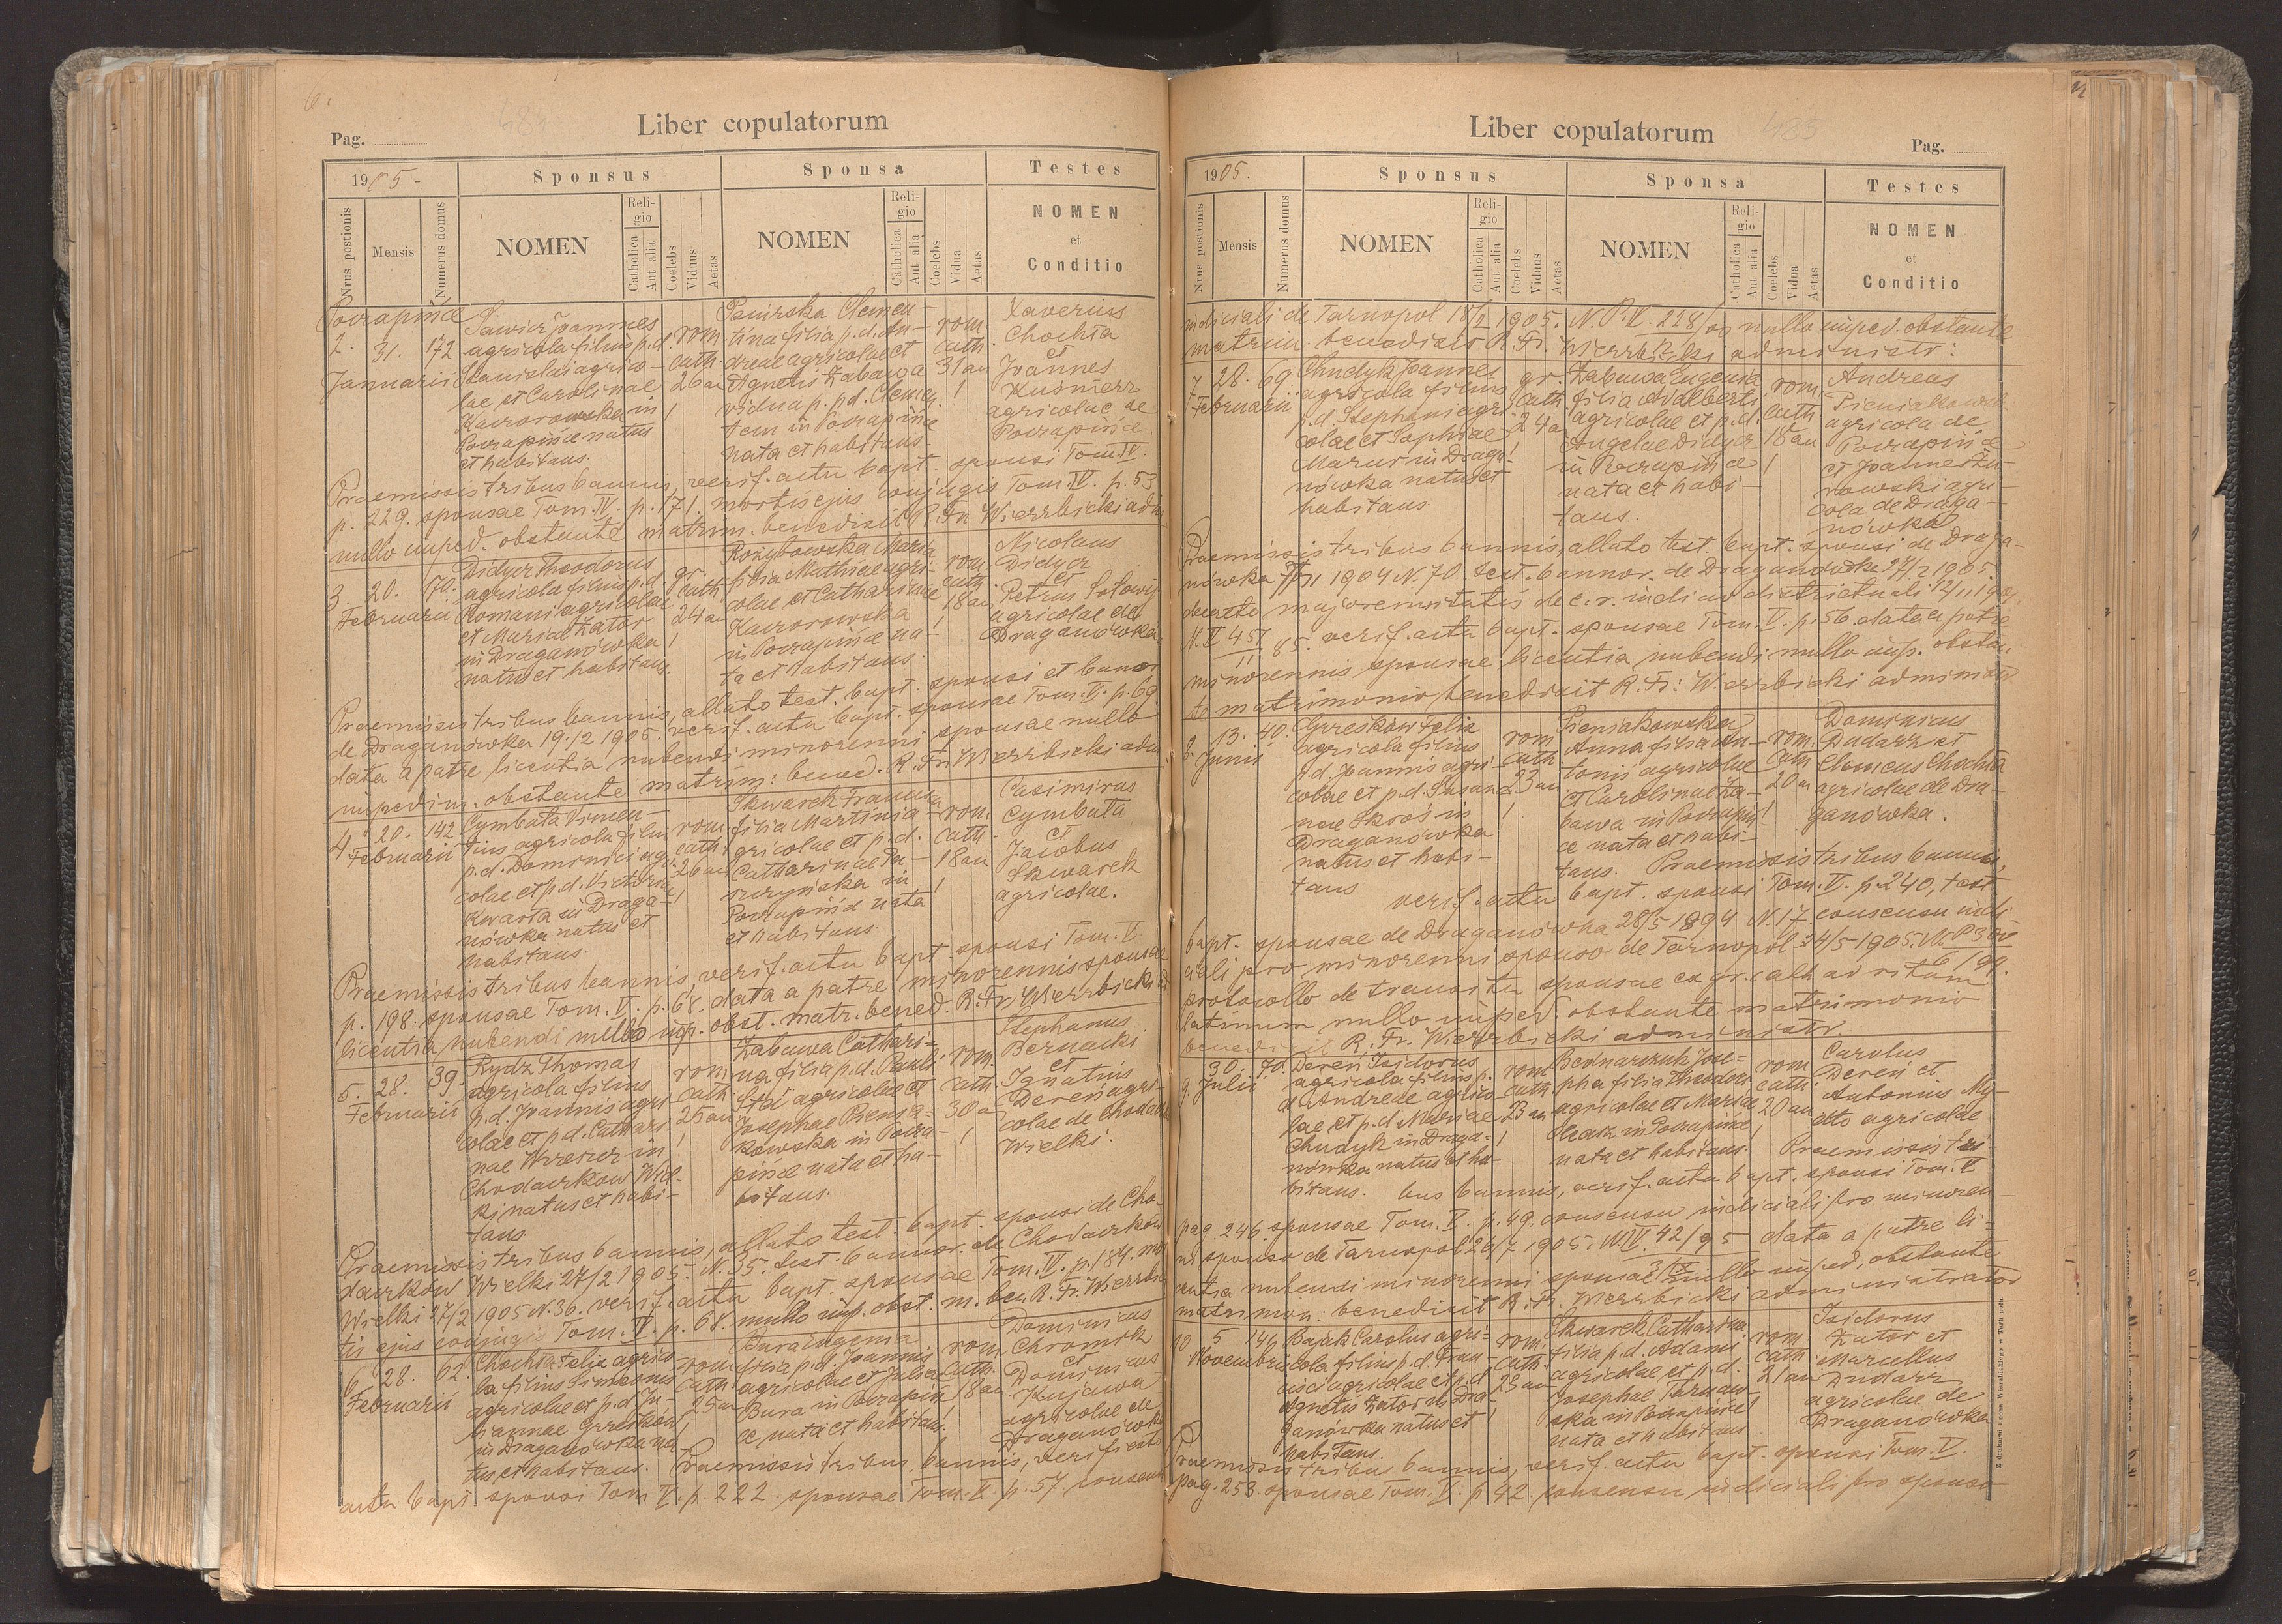 Liber copulatorum
Pag.
1905-
Sponsus
Sponsa
Testes
Nrus postionis
Mensis
Numerus domus
NOMEN
Religio
Catholica
Aut alia
Coelebs
Viduus
Aetas
NOMEN
Religio
Catholica
Aut alia
Coelebs
Vidua
Aetas
NOMEN
et
Conditio
2. 31. 172
Januarii
Joannes
agricola filius p.d.
Stanislai agrico-
lae et Carolinae
in
natus
et habitans.
rom.
cath.
26 an
1
Clemen-
tina filia p.d. An-
dreae agricolae et
Agnetis Zabawa
vidua p. p.d. Clemen-
tem in
nata et habitans.
rom.
cath.
31 an
1
Xaverius
Chochła
et
Joannes
Kuśnierz
agricolae de
Praemissis tribus bannis, verif. actu bapt. sponsi Tom. IV.
p. 229. sponsae Tom. IV. p. 171. mortis ejus conjugis Tom. IV. p. 53
nullo imped. obstante matrim. benedixit R. Fr. Wierzbicki adm
3. 20. 70.
Februarii
Didyer Theodorus
agricola filius p.d.
Romani agricolae
et Mariae Zator
in Draganówka
natus et habitans.
gr.
cath
24 an
1
Maria
filia Mathiae agri-
colae et Catharinae
in
na-
ta et habitans.
rom.
cath.
18 an
1
Nicolaus
Didyer
et
Petrus
agricolae de
Draganówka
Praemissis tribus bannis, allato test. bapt. sponsi et bannor
de Draganówka 19./2 1905. verif. actu bapt. sponsae Tom. V. p. 69
data a patre licentia nubendi minorenni sponsae nullo
impedim. obstante matrim: bened. R. Fr. Wierzbicki adm
4. 20. 142
Februarii
Cymbała Vincen-
tius agricola filius
p.d. Dominici agri-
colae et p.d. Victoria
Kwarta in Draga-
nówka natus et
habitans.
rom.
cath.
26 an
1
Skwarek Francisca
filia Martini a-
gricolae et p.d.
Catharinae
in
nata
et habitans.
rom.
cath.
18 an
1
Casimirus
Cymbała
et
Jacobus
Skwarek
agricolae.
Praemissis tribus bannis, verif. actu bapt. sponsi Tom. V.
p. 198. sponsae Tom. V. p. 68. data a patre minorennis sponsae
licentia nubendi nullo imp. obst. matr. bened. R. Fr. Wierzbicki
5. 28. 39.
Februarii
Rydz Thomas
agricola filius
p.d. Joannis agri
colae et p.d. Cathari
nae in
Chodaczków Wiel-
ki natus et habi-
tans
rom
cath
25 an
1
Zabawa Cathari-
na filia p.d. Pauli
agricolae et
Josephae Pienia-
kowska in
nata et ha-
bitans.
rom.
cath
30 a
1
Stephanus
Bernacki
et
Ignatius
Dereń agri-
colae de Chodacz
Wielki.
Praemissis tribus bannis, allato test. bapt. sponsi de Cho-
daczków Wielki 27/2 1905. N. 35. test. bannor. de Chodaczków
Wielki 27/2 1905 N. 36. verif. actu bapt. sponsae Tom. IV. p. 184. mor
tis ejus conjugis Tom. V. p. 68. nullo imp. obst. m. ben. R. Fr. Wierzbi
6. 28. 62.
Februarii
Chochła Felix agrico
la filius Simeonis
agricolae et p.d. Ju-
liannae Grześków
in Draganówka na-
tus et habitans.
rom
cath
25 an
1
Bura Eugenia
filia p.d. Joannis
agricolae et Julia
Bura in
nata et habitans.
rom.
cath.
18 an
1
Dominicus
Chromik
et
Dominicus
Kujawa
agricolae de
Draganówka
Praemissis tribus bannis, verificato
actu bapt sponsi Tom V. p. 222. sponsae Tom. V. p. 57. consensu
Liber copulatorum
485
Pag.
1905.
Sponsus
Sponsa
Testes
Nrus postionis
Mensis
Numerus domus
NOMEN
Religio
Catholica
Aut alia
Coelebs
Viduus
Aetas
NOMEN
Religio
Catholica
Aut alia
Coelebs
Vidua
Aetas
NOMEN
et
Conditio
judiciali de Tarnopol 1905. nullo imped. obstante
matrim. benedixit R. Fr. Wierzbicki administr:
7. 28. 69
Februarii
Chudyk Joannes
agricola filius
p.d. Stephani agri
colae et Sophiae
Mazur in Draga-
nówka natus et
habitans.
gr.
cath
24 a
1
Zabawa Eugenia
filia Adalberti
agricolae et p.d.
Angelae Didyer
in
nata et habi-
tans.
rom
cath
18 an
1
Andreas
agricola de
et Joannes
agri-
cola de Draga-
nówka
Praemissis tribus bannis, allato test. bapt. sponsi de Draga-
nówka 1904 N. 70. test. bannor. de Draganówka 1905.
decreto majorennitatis de c. r. judicio districtuali
verif. actu bapt. sponsae Tom. V. p. 56. data a patre
minorennis sponsae licentia nubendi nullo imp. obstan.
te matrimonio benedixit R. Fr: Wierzbicki administr
8. 13. 40.
Junii
Grześków Felix
agricola filius
p.d. Joannis agri-
colae et p.d. Susan-
nae Skroś in
Draganówka
natus et habi-
tans
rom
cath
23 an
1
Pieniakowska
Anna filia An-
tonii agricolae
et Carolinae Za-
bawa in
nata et habi-
tans.
rom.
cath
20 an
1
Dominicus
Dudarz et
Clemens Chochła
agricolae de Dra-
ganówka.
Praemissis tribus bannis,
verif. actu bapt. sponsi Tom. V. p. 240, test
bapt. sponsae de Draganówka 28/5 1894 N. 17. consensu judi
ciali pro minorenni sponso de Tarnopol 1905.
protocollo de transitu sponsae ex gr. cath ad ritum
latinum nullo imped. obstante matrimonio
benedixit R. Fr. Wierzbicki administr.
9. 30. 70.
Julii
Dereń Isidorus
agricola filius p.
d. Andreae agrico
lae et p.d. Mariae
Chudyk in Draga-
nówka natus et ha-
bitans.
rom
cath
23 an
1
Bednarczuk Jose-
pha filia Theodori
agricolae et Mariae
in
nata et habitans.
rom
cath.
20 an
1
Carolus
Dereń et
Antonius
agricolae
Praemissis tri-
bus bannis, verif. actu bapt. sponsi Tom. V
pag. 246. sponsae Tom. V. p. 49. consensu judiciali pro minoren-
ni sponso de Tarnopol 1905. data a patre li-
centia nubendi minorenni sponsae nullo imped. obstante
matrimon: benedixit R. Fr. Wierzbicki administrator
10 5 146
Novembris
Bajak Carolus agri-
cola filius p.d. Fran-
cisci agricolae et p.d.
Agnetis Zator in Dra-
ganówka natus et
habitans.
rom.
cath.
23 an
1
Skwarek Catharina
filia p.d. Adami
agricolae et p.d.
Josephae Tarnaw-
ska in
nata et habitans
rom
cath
21 an
1
Isidorus
Zator et
Marcellus
Dudarz
agricolae de
Draganówka
Praemissis tribus bannis, verif. actu bapt. sponsi Tom. V.
pag. 258. sponsae Tom. V. p. 42. consensu judiciali pro sponso